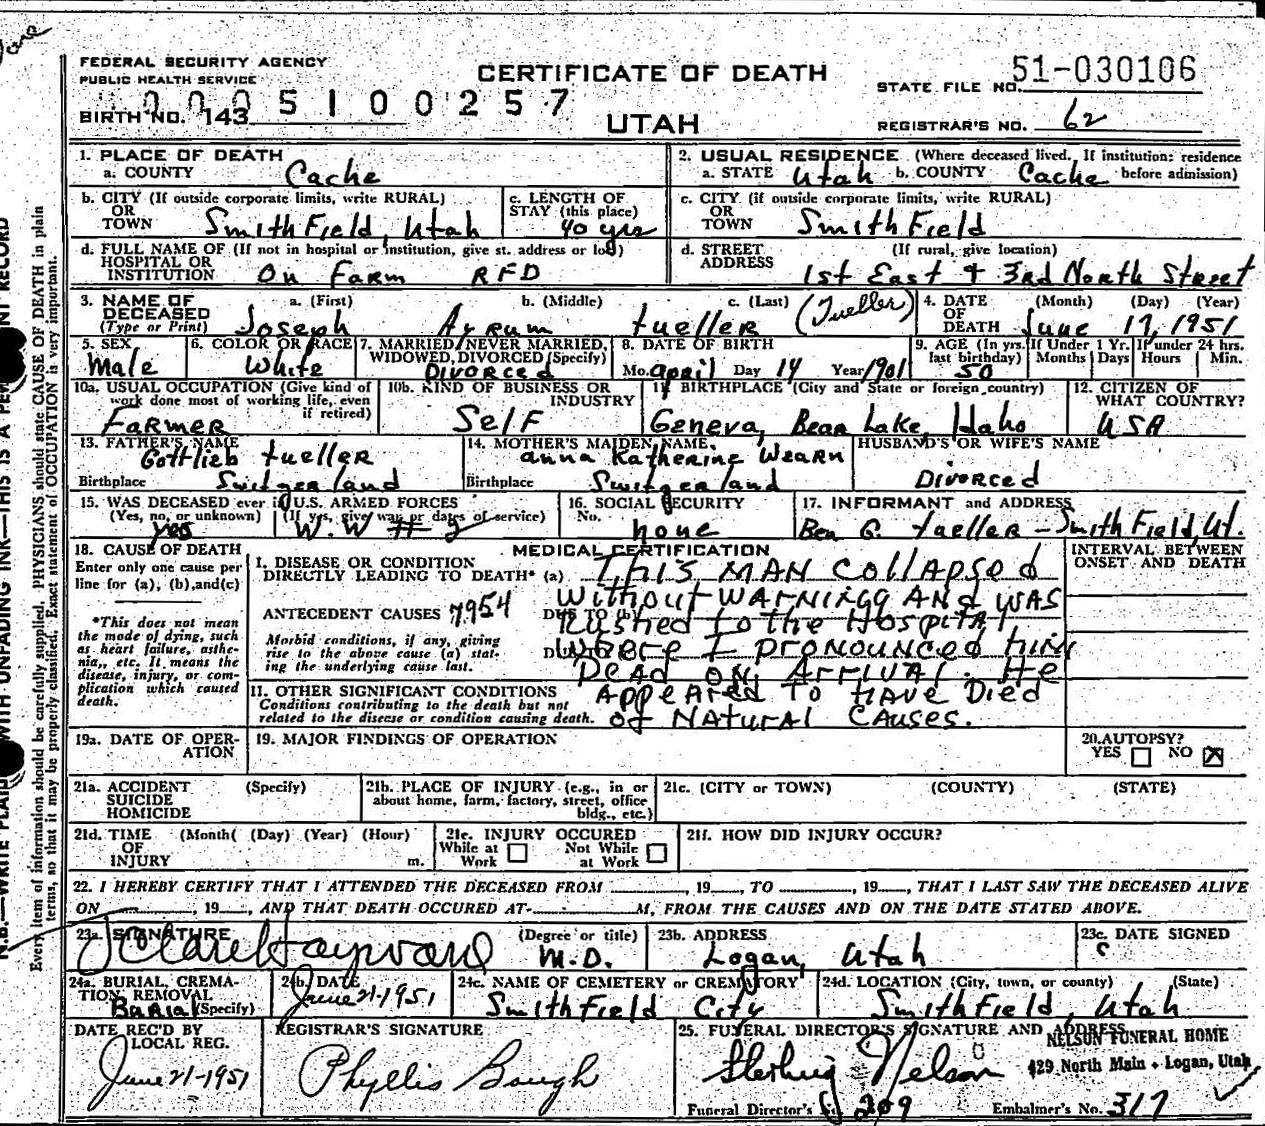 FEDERAL SECURITY AGENCY
PUBLIC HEALTH SERVICE
CERTIFICATE OF DEATH
STATE FILE NO. 51-030106
0005100257
BIRTH NO. 143
UTAH
REGISTRAR'S NO. 62
1. PLACE OF DEATH
a. COUNTY Cache
2. USUAL RESIDENCE (Where deceased lived. If institution: residence before admission)
a. STATE Utah b. COUNTY Cache
b. CITY (If outside corporate limits, write RURAL) OR TOWN Smithfield, Utah
c. LENGTH OF STAY (this place) 40 yrs
c. CITY (if outside corporate limits, write RURAL) OR TOWN Smithfield
d. FULL NAME OF (If not in hospital or institution, give st. address or loc) HOSPITAL OR INSTITUTION On Farm RFD
d. STREET ADDRESS (If rural, give location) 1st East & 3rd North Street
3. NAME OF DECEASED (Type or Print)
a. (First) Joseph b. (Middle) Ayrum c. (Last) tueller (Tueller)
4. DATE OF DEATH (Month) (Day) (Year) June 17, 1951
5. SEX Male
6. COLOR OR RACE White
7. MARRIED, NEVER MARRIED, WIDOWED, DIVORCED (Specify) Divorced
8. DATE OF BIRTH Mo. April Day 14 Year 1901
9. AGE (In yrs. last birthday) 50 If Under 1 Yr. Months Days If under 24 hrs. Hours Min.
10a. USUAL OCCUPATION (Give kind of work done most of working life, even if retired) Farmer
10b. KIND OF BUSINESS OR INDUSTRY Self
11. BIRTHPLACE (City and State or foreign country) Geneva, Bear Lake, Idaho
12. CITIZEN OF WHAT COUNTRY? USA
13. FATHER'S NAME Gottlieb tueller
Birthplace Switzerland
14. MOTHER'S MAIDEN NAME. Anna Katherine Wearn
Birthplace Switzerland
HUSBAND'S OR WIFE'S NAME Divorced
15. WAS DECEASED ever in U.S. ARMED FORCES
(Yes, no, or unknown) yes (If yes, give war or dates of service) W.W # 2
16. SOCIAL SECURITY No. none
17. INFORMANT and ADDRESS Ben G. tueller - Smithfield, Ut.
18. CAUSE OF DEATH
Enter only one cause per line for (a), (b), and (c)
*This does not mean the mode of dying, such as heart failure, asthenia, etc. It means the disease, injury, or complication which caused death.
MEDICAL CERTIFICATION
INTERVAL BETWEEN ONSET AND DEATH
I. DISEASE OR CONDITION DIRECTLY LEADING TO DEATH* (a) This man collapsed
ANTECEDENT CAUSES 7954 DUE TO (b) without warningg and was
rushed to the hospital
Morbid conditions, if any, giving rise to the above cause (a) stating the underlying cause last.
where I pronounced him
dead on arrival. He
II. OTHER SIGNIFICANT CONDITIONS
Conditions contributing to the death but not related to the disease or condition causing death.
appeared to have died
of natural causes.
19a. DATE OF OPERATION
19. MAJOR FINDINGS OF OPERATION
20. AUTOPSY? YES ☐ NO ☒
21a. ACCIDENT SUICIDE HOMICIDE (Specify)
21b. PLACE OF INJURY (e.g., in or about home, farm, factory, street, office bldg., etc.)
21c. (CITY or TOWN) (COUNTY) (STATE)
21d. TIME OF INJURY (Month( (Day) (Year) (Hour) m.
21e. INJURY OCCURED While at Work ☐ Not While at Work ☐
21f. HOW DID INJURY OCCUR?
22. I HEREBY CERTIFY THAT I ATTENDED THE DECEASED FROM ____, 19__, TO ____, 19__, THAT I LAST SAW THE DECEASED ALIVE
ON ____, 19__, AND THAT DEATH OCCURED AT ____ M, FROM THE CAUSES AND ON THE DATE STATED ABOVE.
23a. SIGNATURE Hayward (Degree or title) M.D.
23b. ADDRESS Logan, Utah
23c. DATE SIGNED
24a. BURIAL, CREMATION, REMOVAL (Specify) Burial
24b. DATE June 21-1951
24c. NAME OF CEMETERY or CREMATORY Smithfield City
24d. LOCATION (City, town, or county) (State) Smithfield, Utah
DATE REC'D BY LOCAL REG. June 21-1951
REGISTRAR'S SIGNATURE Phyllis Bough
25. FUNERAL DIRECTOR'S SIGNATURE AND ADDRESS
Sterling Nelson
NELSON FUNERAL HOME
429 North Main • Logan, Utah
Funeral Director's 209 Embalmer's No. 317
N.B.—WRITE PLAINLY WITH UNFADING INK—THIS IS A PERMANENT RECORD
Every item of information should be carefully supplied. PHYSICIANS should state CAUSE OF DEATH in plain
terms, so that it may be properly classified. Exact statement of OCCUPATION is very important.